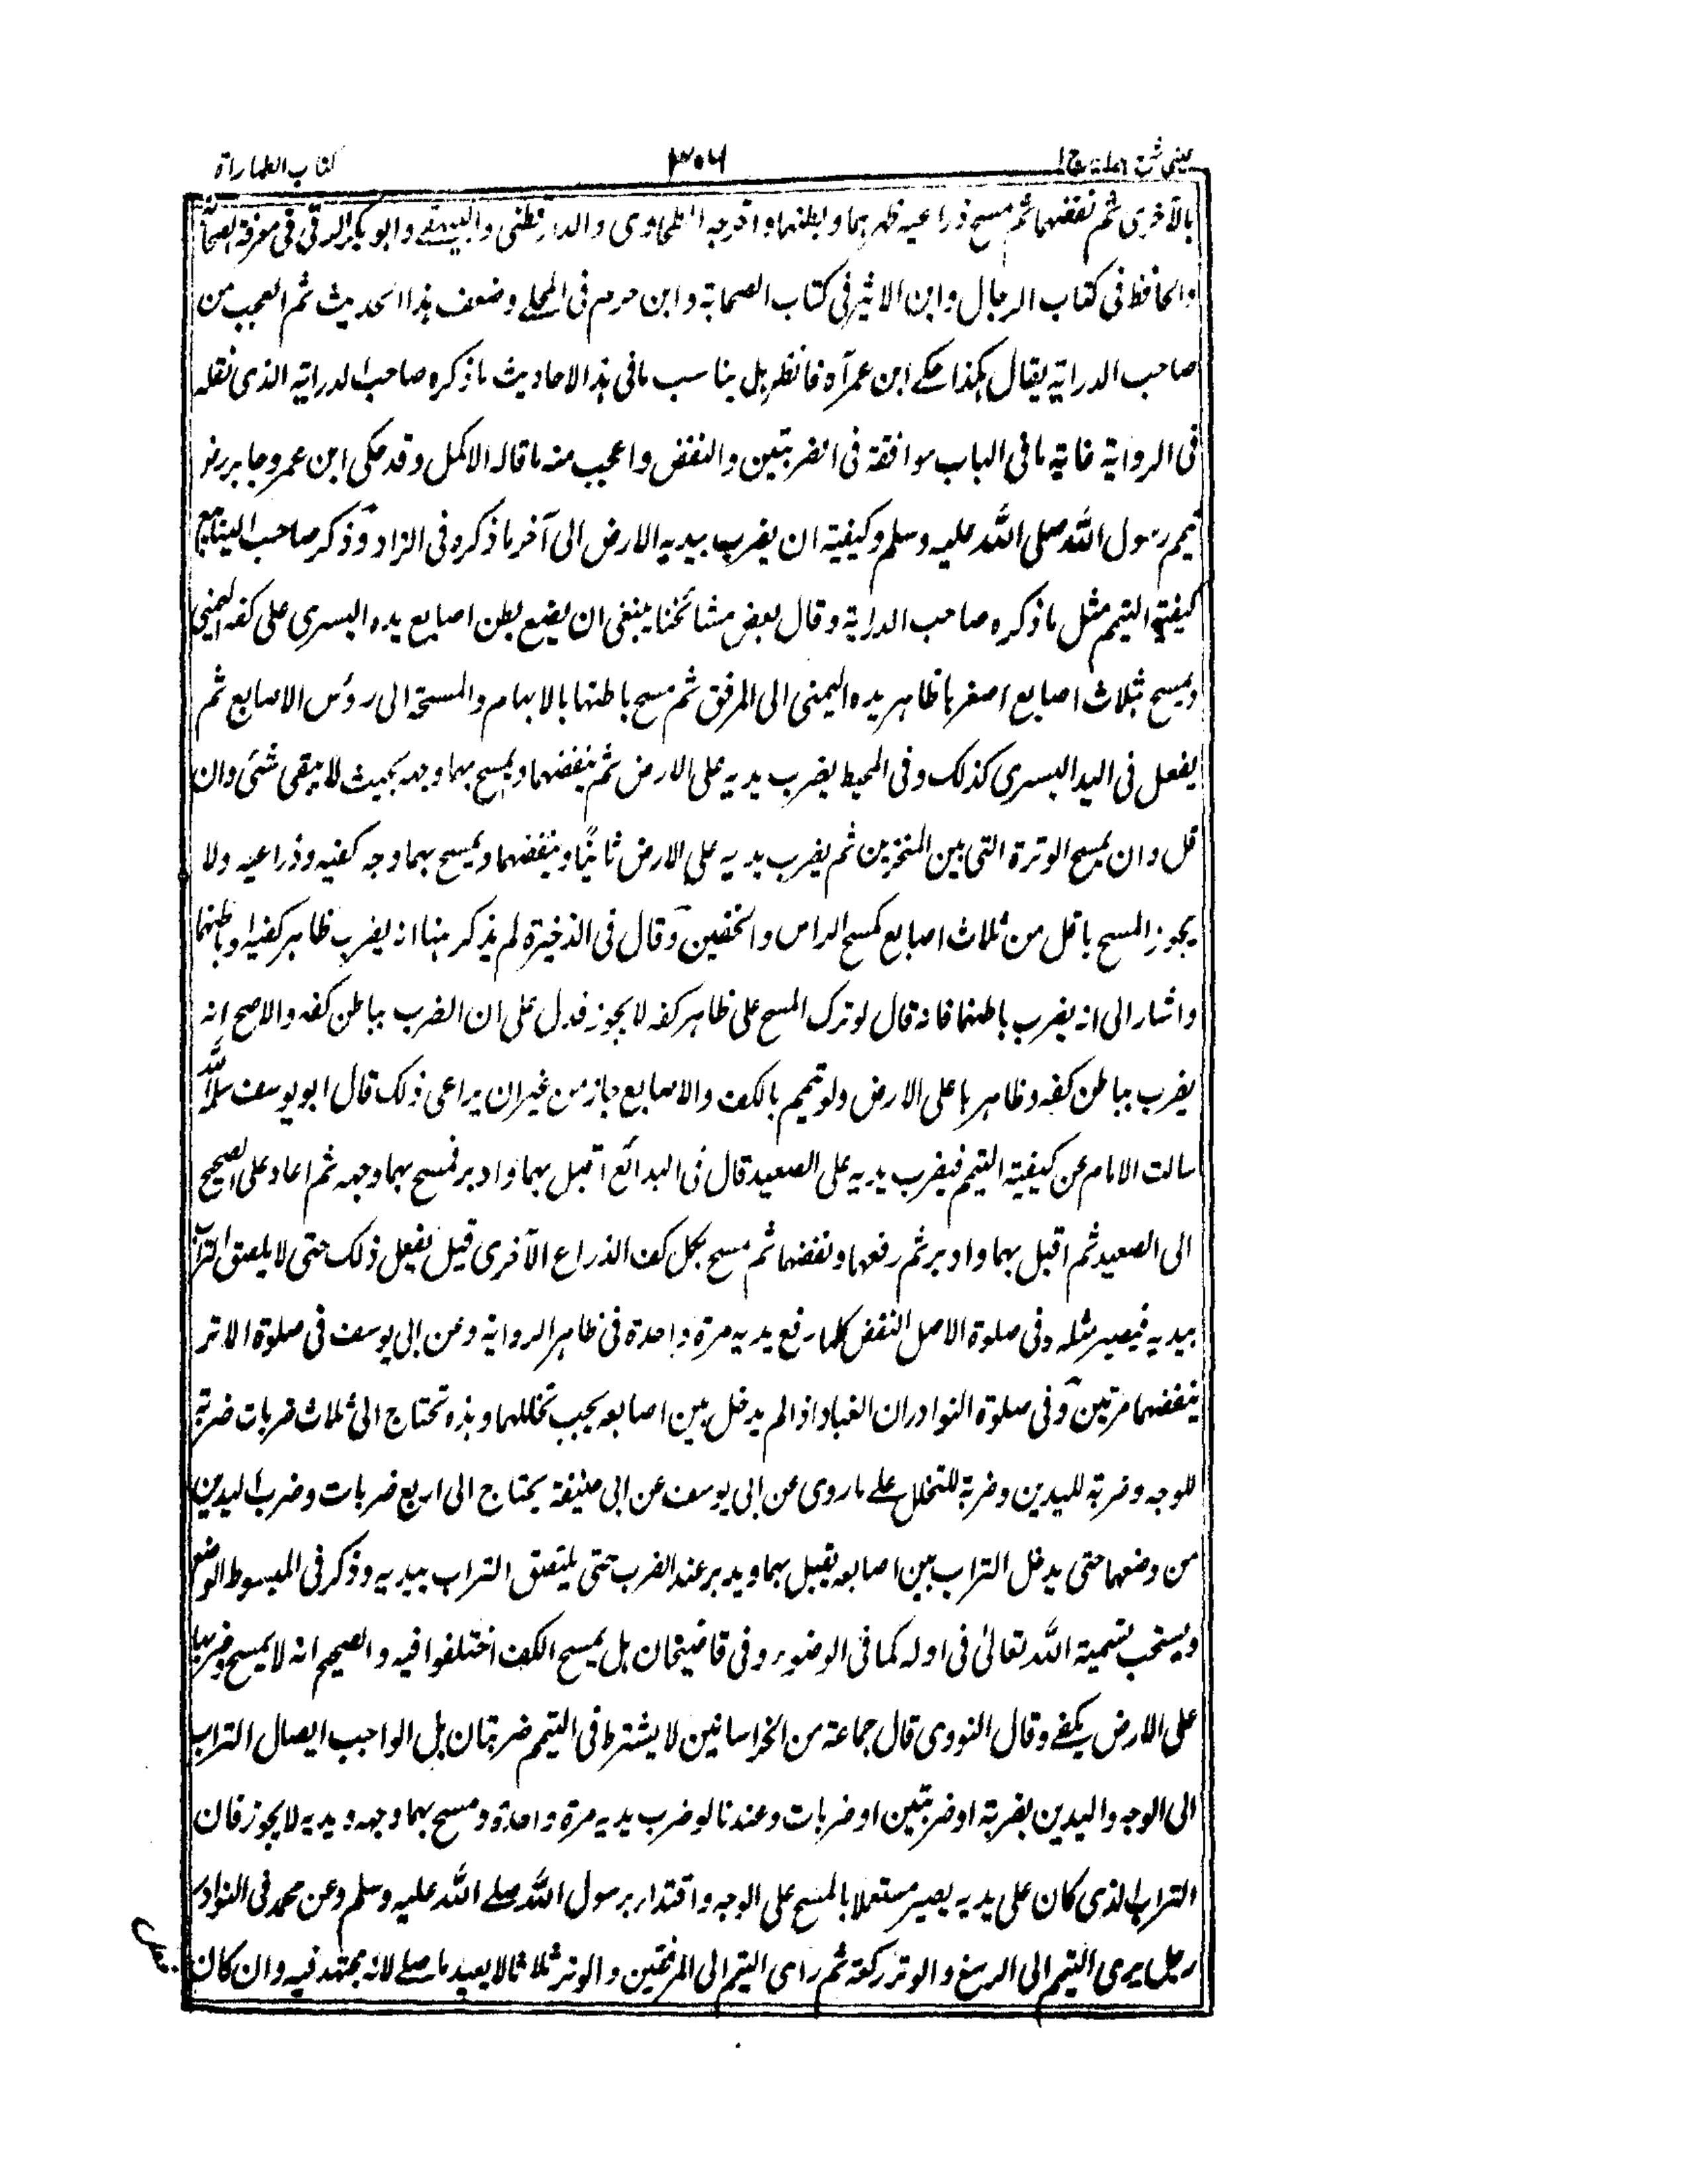 عینی شرح ہدایہ ج ۱
۳۰۶
کتاب الطهارة
بالاخری ثم نفضهما ثم مسح ذراعیه ظهرهما وبطنهما واخرجه الطحاوی والدارقطنی والبیهقی وابو بکر الرقی فی معرفة الصحابة
والحافظ فی کتاب الرجال وابن الاثیر فی کتاب الصحابة وابن حزم فی المحلے وضعف هذا الحدیث ثم العجب من
صاحب الدرایة یقال هکذا حکے ابن عمر آه فانظر هل یناسب مافی هذا الاحادیث ماذکره صاحب الدرایة الذی نقله
فی الروایة غایة مافی الباب موافقة فی الضربتین والنفض واعجب منه ماقاله الاکمل وقد حکی ابن عمر وجابر رضـ
تیمم رسول الله صلی الله علیه وسلم وکیفیة ان یضرب بیدیه الارض الی آخر ماذکره فی الزاد وذکر صاحب الینابیع
کیفیة التیمم مثل ماذکره صاحب الدرایة وقال بعض مشائخنا ینبغی ان یضع بطن اصابع یده الیسری علی کفه الیمنی
ویمسح بثلاث اصابع اصغرها ظاهر یده الیمنی الی المرفق ثم مسح باطنها بالابهام والمسبحة الی رؤس الاصابع ثم
یفعل فی الید الیسری کذلک وفی المحیط یضرب یدیه علی الارض ثم ینفضهما ویمسح بهما وجهه بحیث لایبقی شئ وان
قل وان یمسح الوترة التی بین المنخرین ثم یضرب یدیه علی الارض ثانیًا وینفضهما ویمسح بهما وجه کفیه وذراعیه ولا
یجوز المسح باقل من ثلاث اصابع کمسح الراس والخفین وقال فی الذخیرة لم یذکر هنا انه یضرب ظاهر کفیه او باطنهما
واشار الی انه یضرب باطنهما فانه قال لو ترک المسح علی ظاهر کفه لایجوز فدل علی ان الضرب بباطن کفه والاصح انه
یضرب بباطن کفه وظاهرها علی الارض ولو تیمم بالکف والاصابع جاز من غیر ان یراعی ذلک قال ابو یوسف
سالت الامام عن کیفیة التیمم فیضرب یدیه علی الصعید قال فی البدائع اقبل بهما وادبر فمسح بهما وجهه ثم اعاد علی الصحیح
الی الصعید ثم اقبل بهما وادبر ثم رفعها ونفضهما ثم مسح بکل کف الذراع الآخری قیل یفعل ذلک حتی لا یلصق التراب
بیدیه فیصیر مثله وفی صلوة الاصل النفض کلما رفع یدیه مرة واحدة فی ظاهر الروایة وعن ابی یوسف فی صلوة الاثر
ینفضهما مرتین وفی صلوة النوادر ان الغبار اذا لم یدخل بین اصابعه یجب تخللهما وهذه تحتاج الی ثلاث ضربات ضربة
للوجه وضربة للیدین وضربة للتخلل علے ماروی عن ابی یوسف عن ابی حنیفة یحتاج الی اربع ضربات وضرب الیدین
من وضعها حتی یدخل التراب بین اصابعه یقبل بهما ویدبر عند الضرب حتی یلتصق التراب بیدیه وذکر فی المبسوط الوضع
ویستحب تسمیة الله تعالیٰ فی اوله کما فی الوضوء وفی قاضیخان هل یمسح الکف اختلفوا فیه والصحیح انه لا یمسح وضربها
علی الارض یکفے وقال النووی قال جماعة من الخراسانین لایشترط فی التیمم ضربتان بل الواجب ایصال التراب
الی الوجه والیدین بضربة او ضربتین او ضربات وعندنا لو ضرب یدیه مرة واحدة ومسح بهما وجهه ویدیه لایجوز فان
التراب الذی کان علی یدیه یصیر مستعملا بالمسح علی الوجه واقتداء برسول الله صلے الله علیه وسلم وعن محمد فی النوادر
رجل یری التیمم الی الرسغ والوتر رکعة ثم رای التیمم الی المرفقین والوتر ثلاثا لا یعید ماصلے لانه مجتهد فیه وان کان